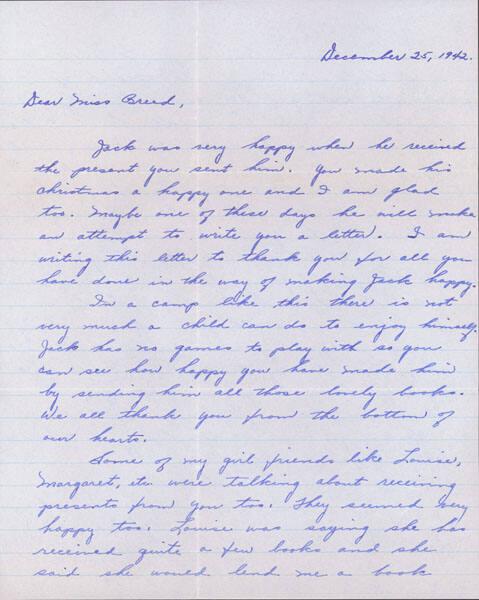 December 25, 1942.
Dear Miss Breed,
Jack was very happy when he received
the present you sent him. You made his
Christmas a happy one and I am glad
too. Maybe one of these days he will make
an attempt to write you a letter. I am
writing this letter to thank you for all you
have done in the way of making Jack happy.
In a camp like this there is not
very much a child can do to enjoy himself.
Jack has no games to play with so you
can see how happy you have made him
by sending him all those lovely books.
We all thank you from the bottom of
our hearts.
Some of my girl friends like Louise,
Margaret, etc. were talking about receiving
presents from you too. They seemed very
happy too. Louise was saying she has
received quite a few books and she
said she would lend me a book